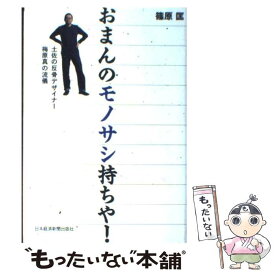 篠原 匡
おまんのモノサシ持ちや!
土佐の反骨デザイナー
梅原真の流儀
日本経済新聞出版社
"もったいない本舗"